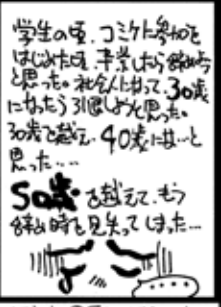 学生の頃、コミケに参加を
はじめた頃、卒業したら辞め時
と思った。社会人になって、30歳
になったら引退しようと思った。
30歳を越え、40歳にな…と
思った…
50歳を越えて、もう
辞め時を見失ってしまった…